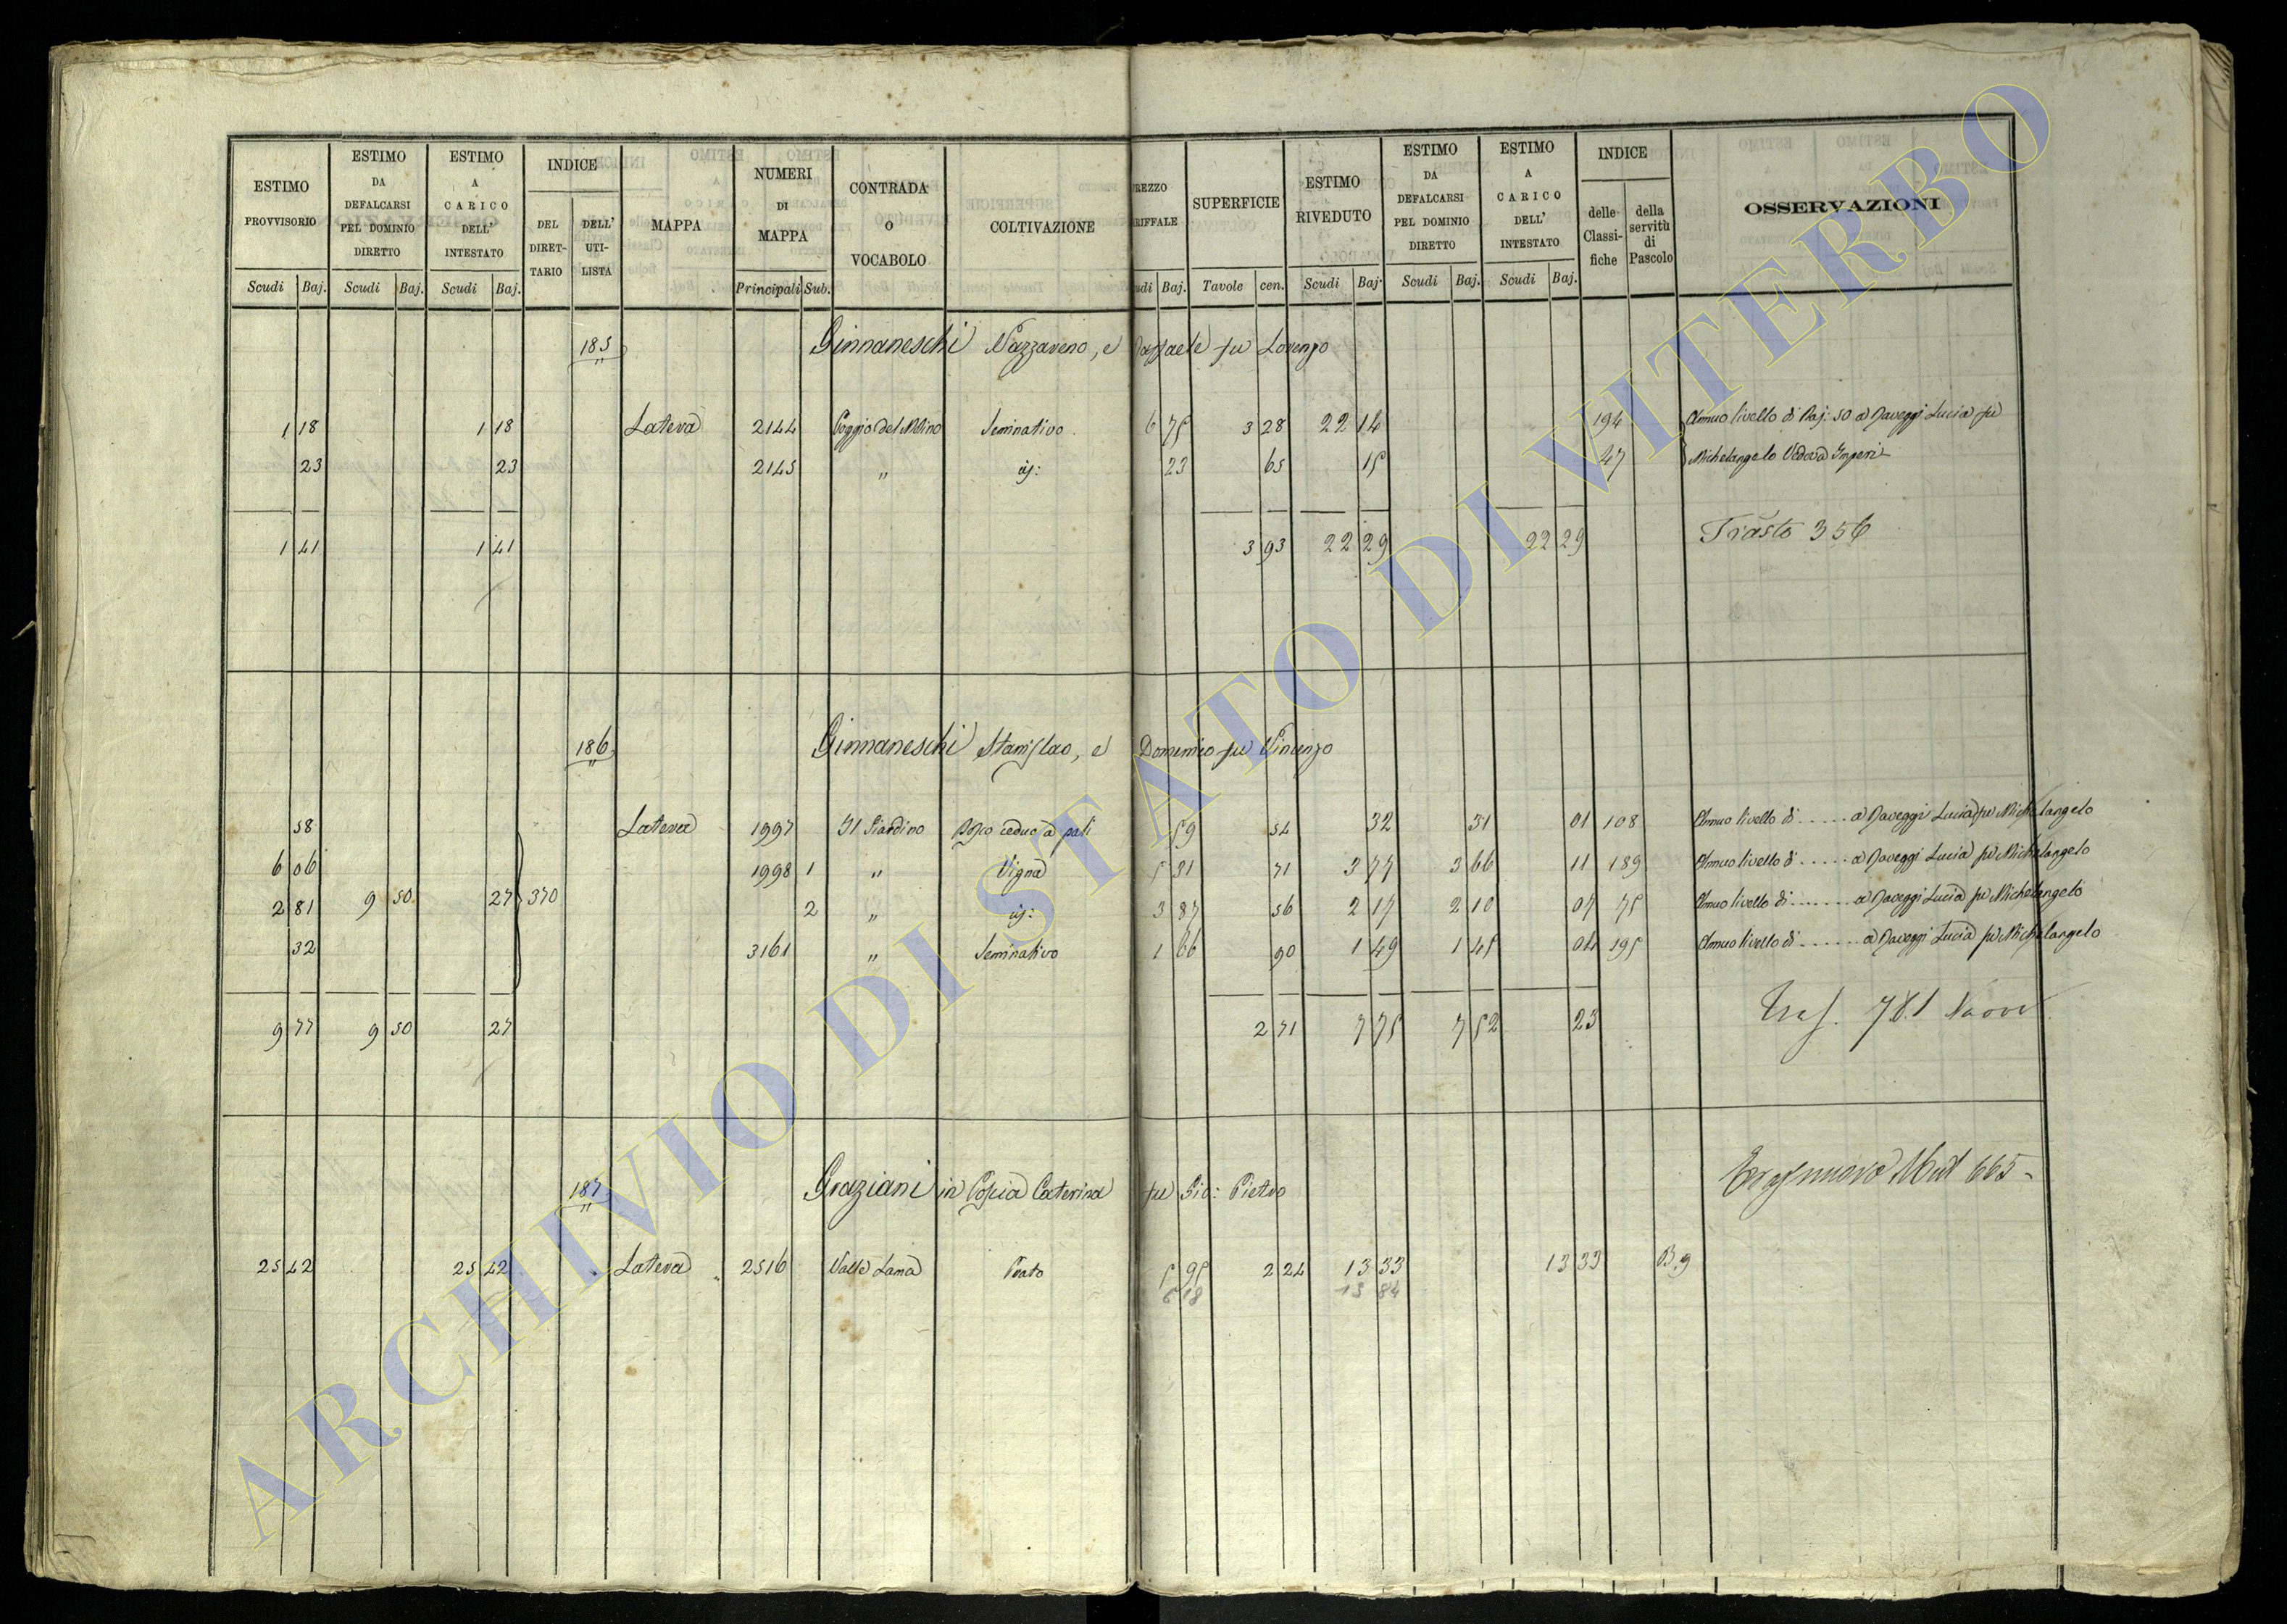 ESTIMO PROVVISORIO
ESTIMO DA DEFALCARSI PEL DOMINIO DIRETTO
ESTIMO A CARICO DELL' INTESTATO
INDICE
DEL DIRET- TARIO
DELL' UTI- LISTA
MAPPA
NUMERI DI MAPPA
CONTRADA O VOCABOLO
COLTIVAZIONE
REZZO RIFFALE
SUPERFICIE
ESTIMO RIVEDUTO
ESTIMO DA DEFALCARSI PEL DOMINIO DIRETTO
ESTIMO A CARICO DELL' INTESTATO
INDICE
delle Classi- fiche
della servitù di Pascolo
OSSERVAZIONI
Scudi Baj. Scudi Baj. Scudi Baj. Principali Sub. udi Baj. Tavole cen. Scudi Baj. Scudi Baj. Scudi Baj.
185 Ginnaneschi Nazzareno, e Raffaele fu Lorenzo
1 18 1 18 Latera 2144 Poggio del Mlino Seminativo 6 75 3 28 22 14 194 Annuo livello di Baj: 50 a Naveggi Lucia fu
23 23 2145 " id: 23 65 15 47 Michelangelo Vedova Imperi
1 41 1 41 3 93 22 29 22 29 Trasto 356
186 Ginnaneschi Stanislao, e Domenico fu Vincenzo
58 Latera 1997 Il Giardino Bosco ceduo a pali 59 54 32 31 01 108 Annuo livello di ..... a Naveggi Lucia fu Michelangelo
6 06 1998 1 " Vigna 5 31 71 3 77 3 66 11 189 Annuo livello di ..... a Naveggi Lucia fu Michelangelo
2 81 9 50 27 370 2 " id: 3 87 56 2 17 2 10 07 75 Annuo livello di ....... a Naveggi Lucia fu Michelangelo
32 3161 " Seminativo 1 66 90 1 49 1 45 04 195 Annuo livello di ....... a Naveggi Lucia fu Michelangelo
9 77 9 50 27 2 71 7 75 7 52 23 Trasf. 781 Nuovo
187 Graziani in Poscia Caterina fu Gio: Pietro
25 42 25 42 Latera 2516 Valle Lama Prato 5 95 2 24 13 33 13 33 B.9
6 18 13 84
ARCHIVIO DI STATO DI VITERBO